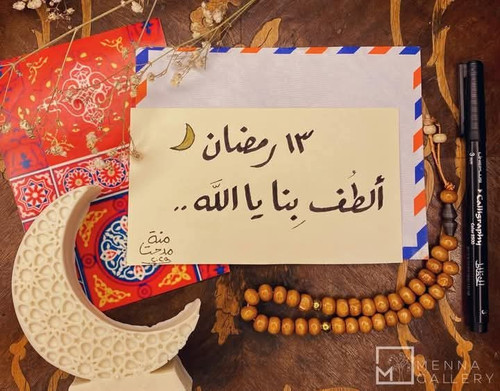 ١٣ رمضان
ألطُف بِنا يا اللَّه ..
منة
مدحت
Calligraphy
MENNA
GALLERY